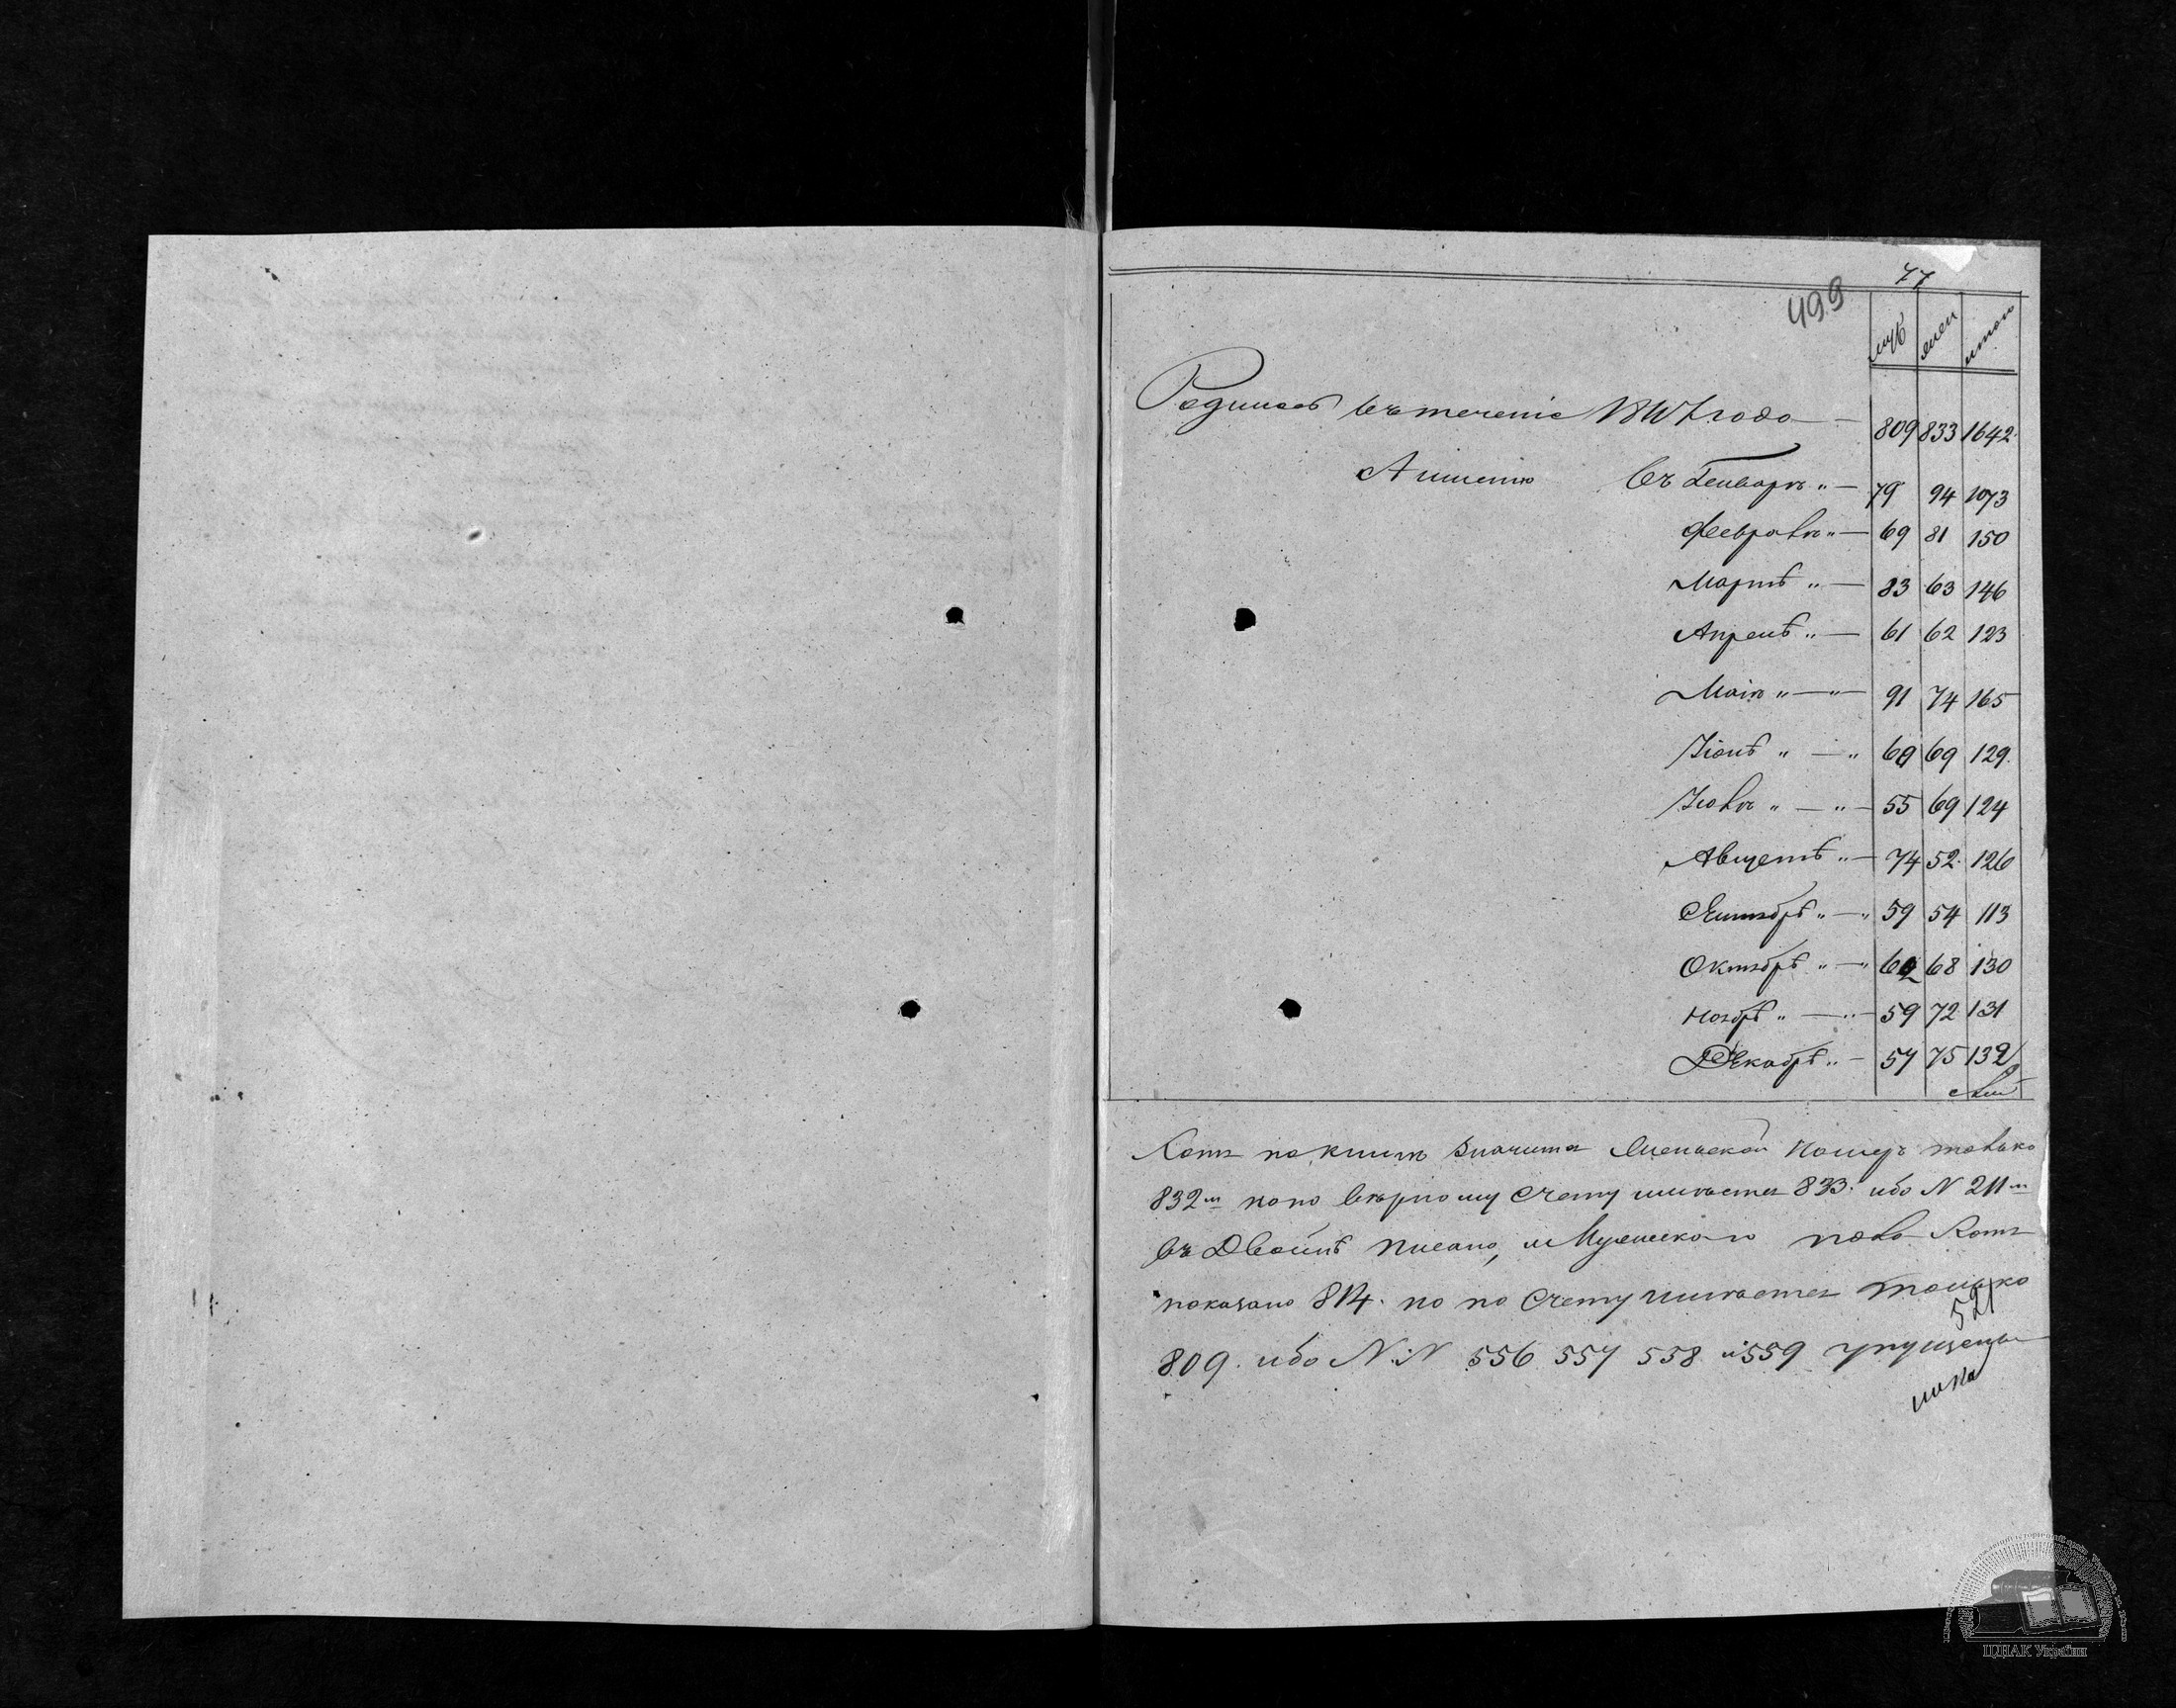 47
499
муж жен итого
Родилось въ теченіе года — 809 833 1642.
А имено въ Генваре „ — 79 94 173
Феврале „ — 69 81 150
Марте „ — 83 63 146
Апреле „ — 61 62 123
Маіе „ — „ — 91 74 165
Іюне „ — „ 60 69 129.
Іюле „ — „ — 55 69 124
Августе „ — 74 52. 126
Сентябре „ — „ 59 54 113
Октябре „ — „ 62 68 130
Ноябре „ — „ — 59 72 131
Декабре „ — 57 75 132
Хотя по книге значится женской номеръ только
832 но по верному счету имеется 833. ибо N 211
въ двойне писано, и мужескаго пола хотя
показано 814. но по счету имеется только
521
809. ибо N:N 556 557 558 и 559 упущены
ЦДІАК України